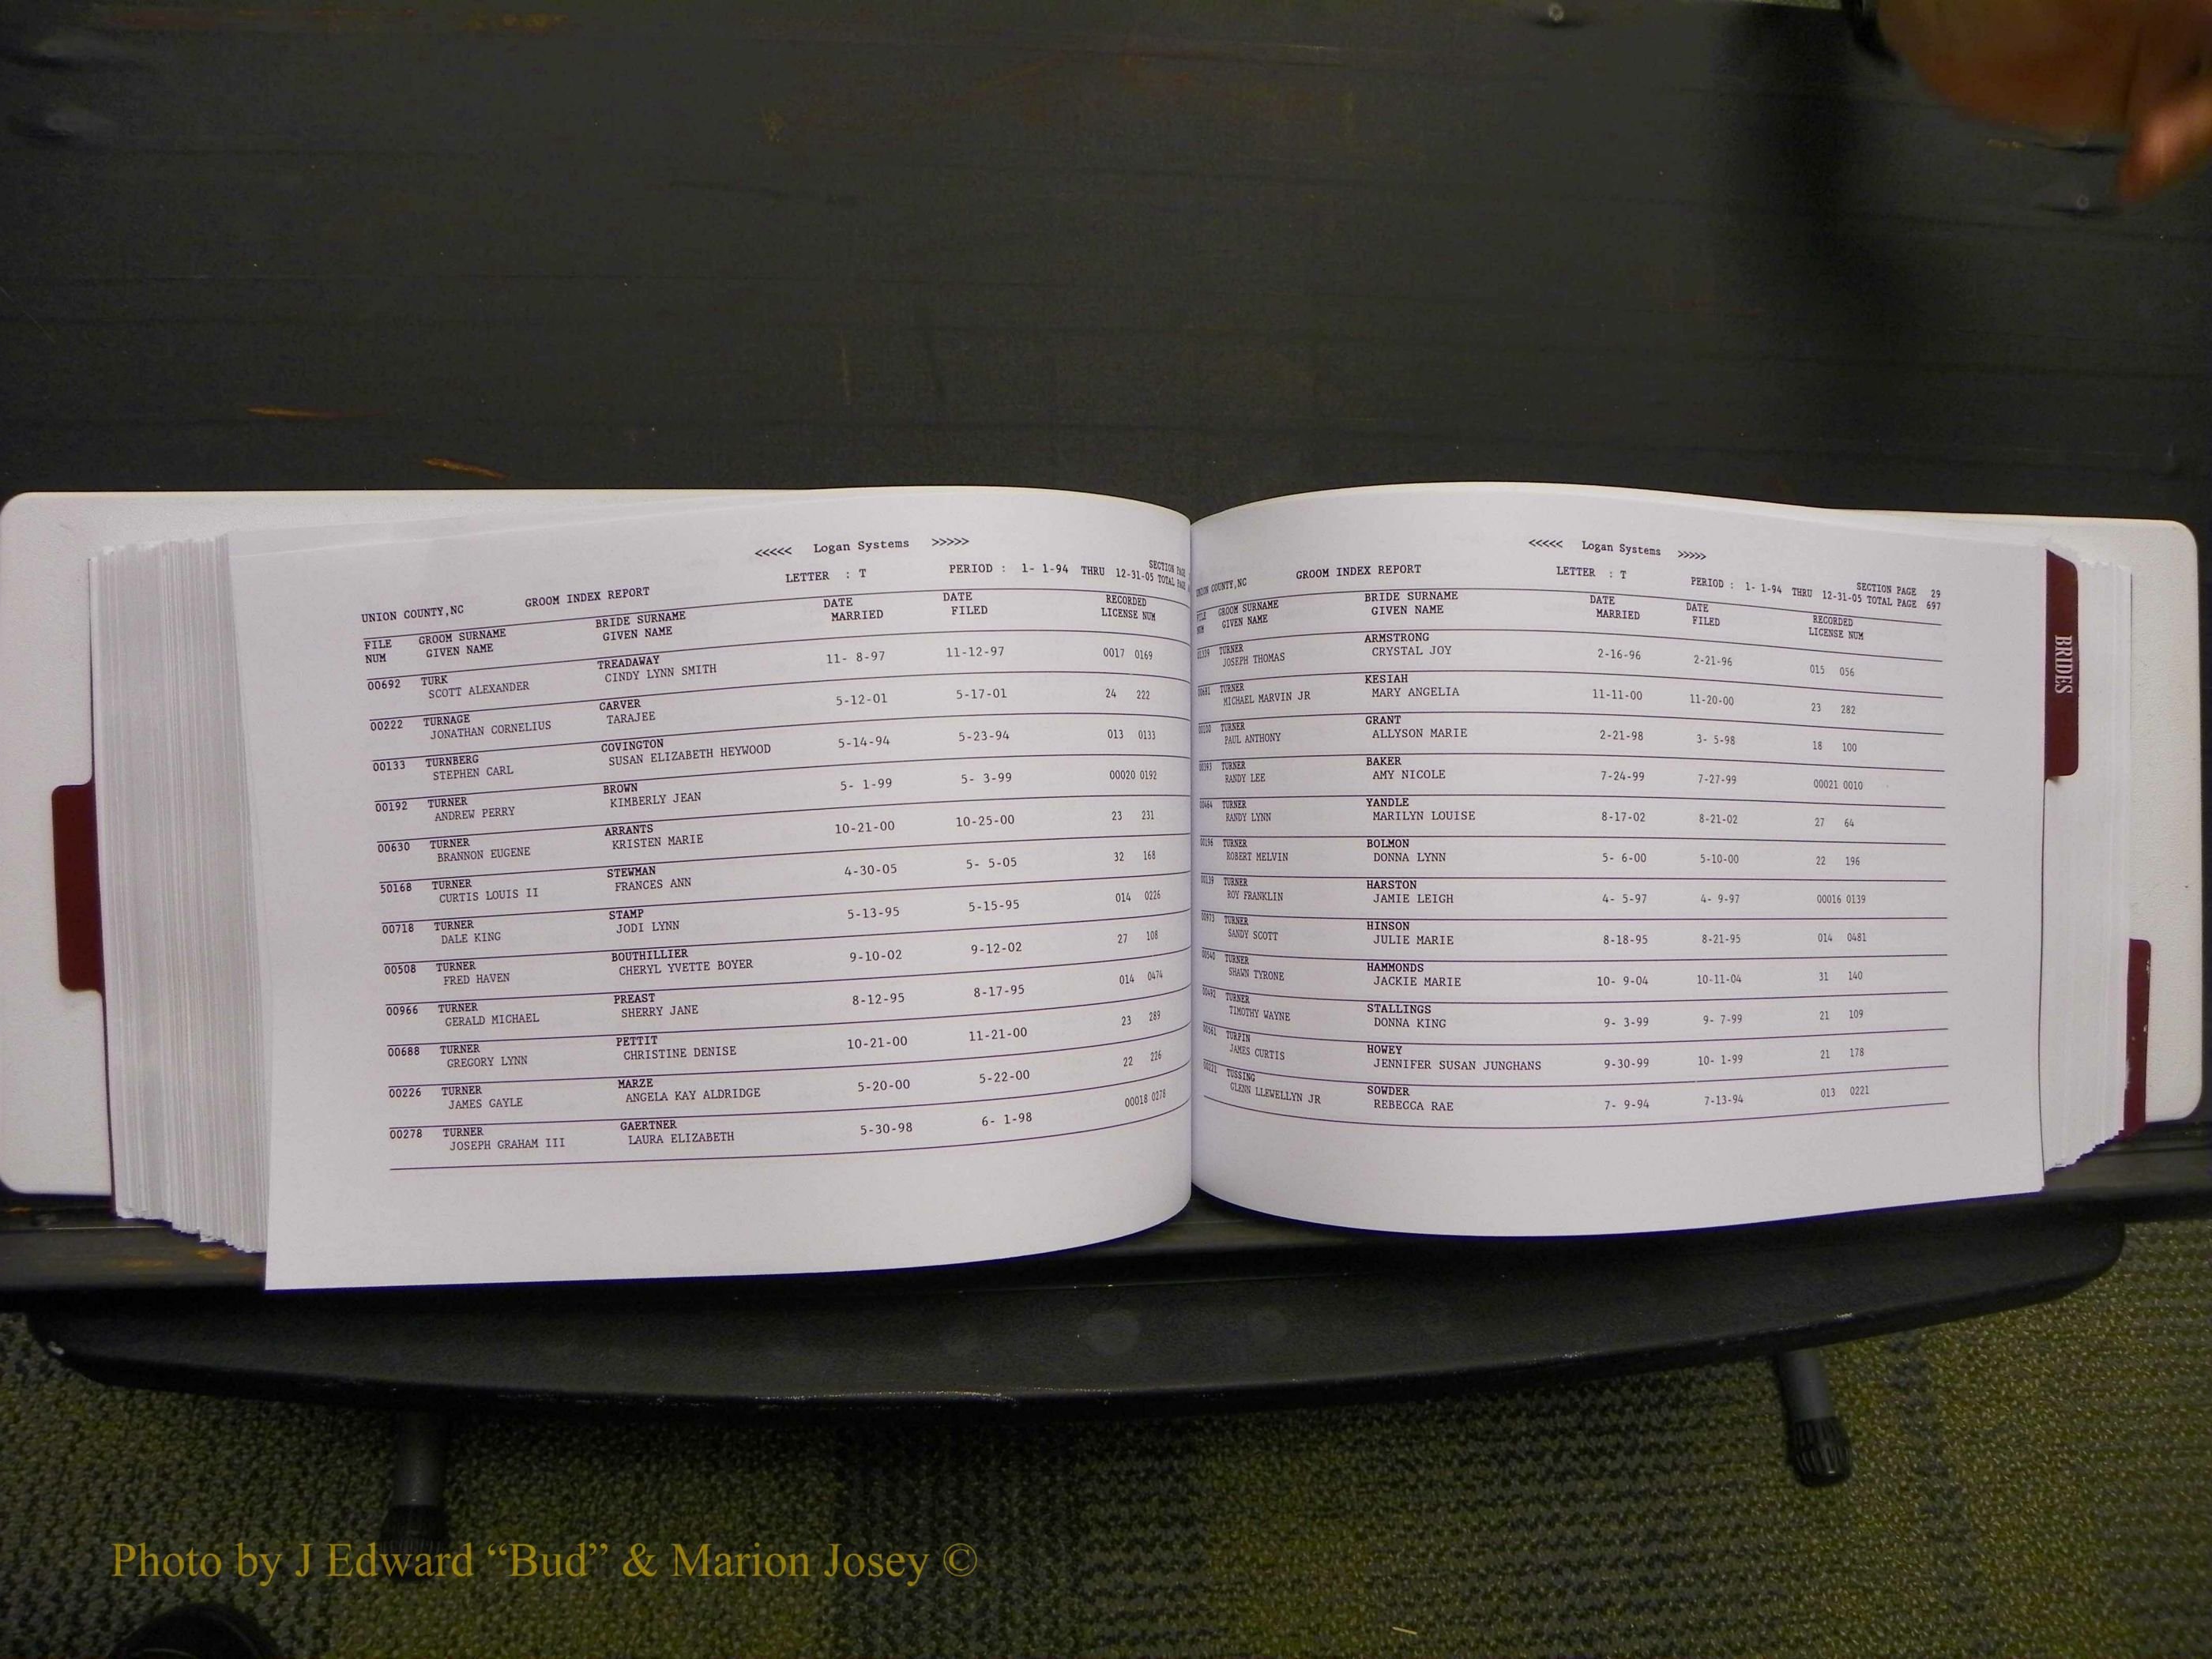 <<<<< Logan Systems >>>>>
LETTER : T PERIOD : 1- 1-94 THRU 12-31-05 SECTION PAGE
UNION COUNTY,NC GROOM INDEX REPORT TOTAL PAGE
FILE GROOM SURNAME BRIDE SURNAME DATE DATE RECORDED
NUM GIVEN NAME GIVEN NAME MARRIED FILED LICENSE NUM
00692 TURK TREADAWAY 11- 8-97 11-12-97 0017 0169
SCOTT ALEXANDER CINDY LYNN SMITH
00222 TURNAGE CARVER 5-12-01 5-17-01 24 222
JONATHAN CORNELIUS TARAJEE
00133 TURNBERG COVINGTON 5-14-94 5-23-94 013 0133
STEPHEN CARL SUSAN ELIZABETH HEYWOOD
00192 TURNER BROWN 5- 1-99 5- 3-99 00020 0192
ANDREW PERRY KIMBERLY JEAN
00630 TURNER ARRANTS 10-21-00 10-25-00 23 231
BRANNON EUGENE KRISTEN MARIE
50168 TURNER STEWMAN 4-30-05 5- 5-05 32 168
CURTIS LOUIS II FRANCES ANN
00718 TURNER STAMP 5-13-95 5-15-95 014 0226
DALE KING JODI LYNN
00508 TURNER BOUTHILLIER 9-10-02 9-12-02 27 108
FRED HAVEN CHERYL YVETTE BOYER
00966 TURNER PREAST 8-12-95 8-17-95 014 0474
GERALD MICHAEL SHERRY JANE
00688 TURNER PETTIT 10-21-00 11-21-00 23 289
GREGORY LYNN CHRISTINE DENISE
00226 TURNER MARZE 5-20-00 5-22-00 22 226
JAMES GAYLE ANGELA KAY ALDRIDGE
00278 TURNER GAERTNER 5-30-98 6- 1-98 00018 0278
JOSEPH GRAHAM III LAURA ELIZABETH
<<<<< Logan Systems >>>>>
UNION COUNTY,NC GROOM INDEX REPORT LETTER : T PERIOD : 1- 1-94 THRU 12-31-05 SECTION PAGE 29
TOTAL PAGE 697
FILE GROOM SURNAME BRIDE SURNAME DATE DATE RECORDED
NUM GIVEN NAME GIVEN NAME MARRIED FILED LICENSE NUM
TURNER ARMSTRONG 2-16-96 2-21-96 015 056
JOSEPH THOMAS CRYSTAL JOY
TURNER KESIAH 11-11-00 11-20-00 23 282
MICHAEL MARVIN JR MARY ANGELIA
00100 TURNER GRANT 2-21-98 3- 5-98 18 100
PAUL ANTHONY ALLYSON MARIE
TURNER BAKER 7-24-99 7-27-99 00021 0010
RANDY LEE AMY NICOLE
00464 TURNER YANDLE 8-17-02 8-21-02 27 64
RANDY LYNN MARILYN LOUISE
00196 TURNER BOLMON 5- 6-00 5-10-00 22 196
ROBERT MELVIN DONNA LYNN
00139 TURNER HARSTON 4- 5-97 4- 9-97 00016 0139
ROY FRANKLIN JAMIE LEIGH
00973 TURNER HINSON 8-18-95 8-21-95 014 0481
SANDY SCOTT JULIE MARIE
TURNER HAMMONDS 10- 9-04 10-11-04 31 140
SHAWN TYRONE JACKIE MARIE
00492 TURNER STALLINGS 9- 3-99 9- 7-99 21 109
TIMOTHY WAYNE DONNA KING
00561 TURPIN HOWEY 9-30-99 10- 1-99 21 178
JAMES CURTIS JENNIFER SUSAN JUNGHANS
00221 TUSSING SOWDER 7- 9-94 7-13-94 013 0221
GLENN LLEWELLYN JR REBECCA RAE
BRIDES
Photo by J Edward “Bud” & Marion Josey ©